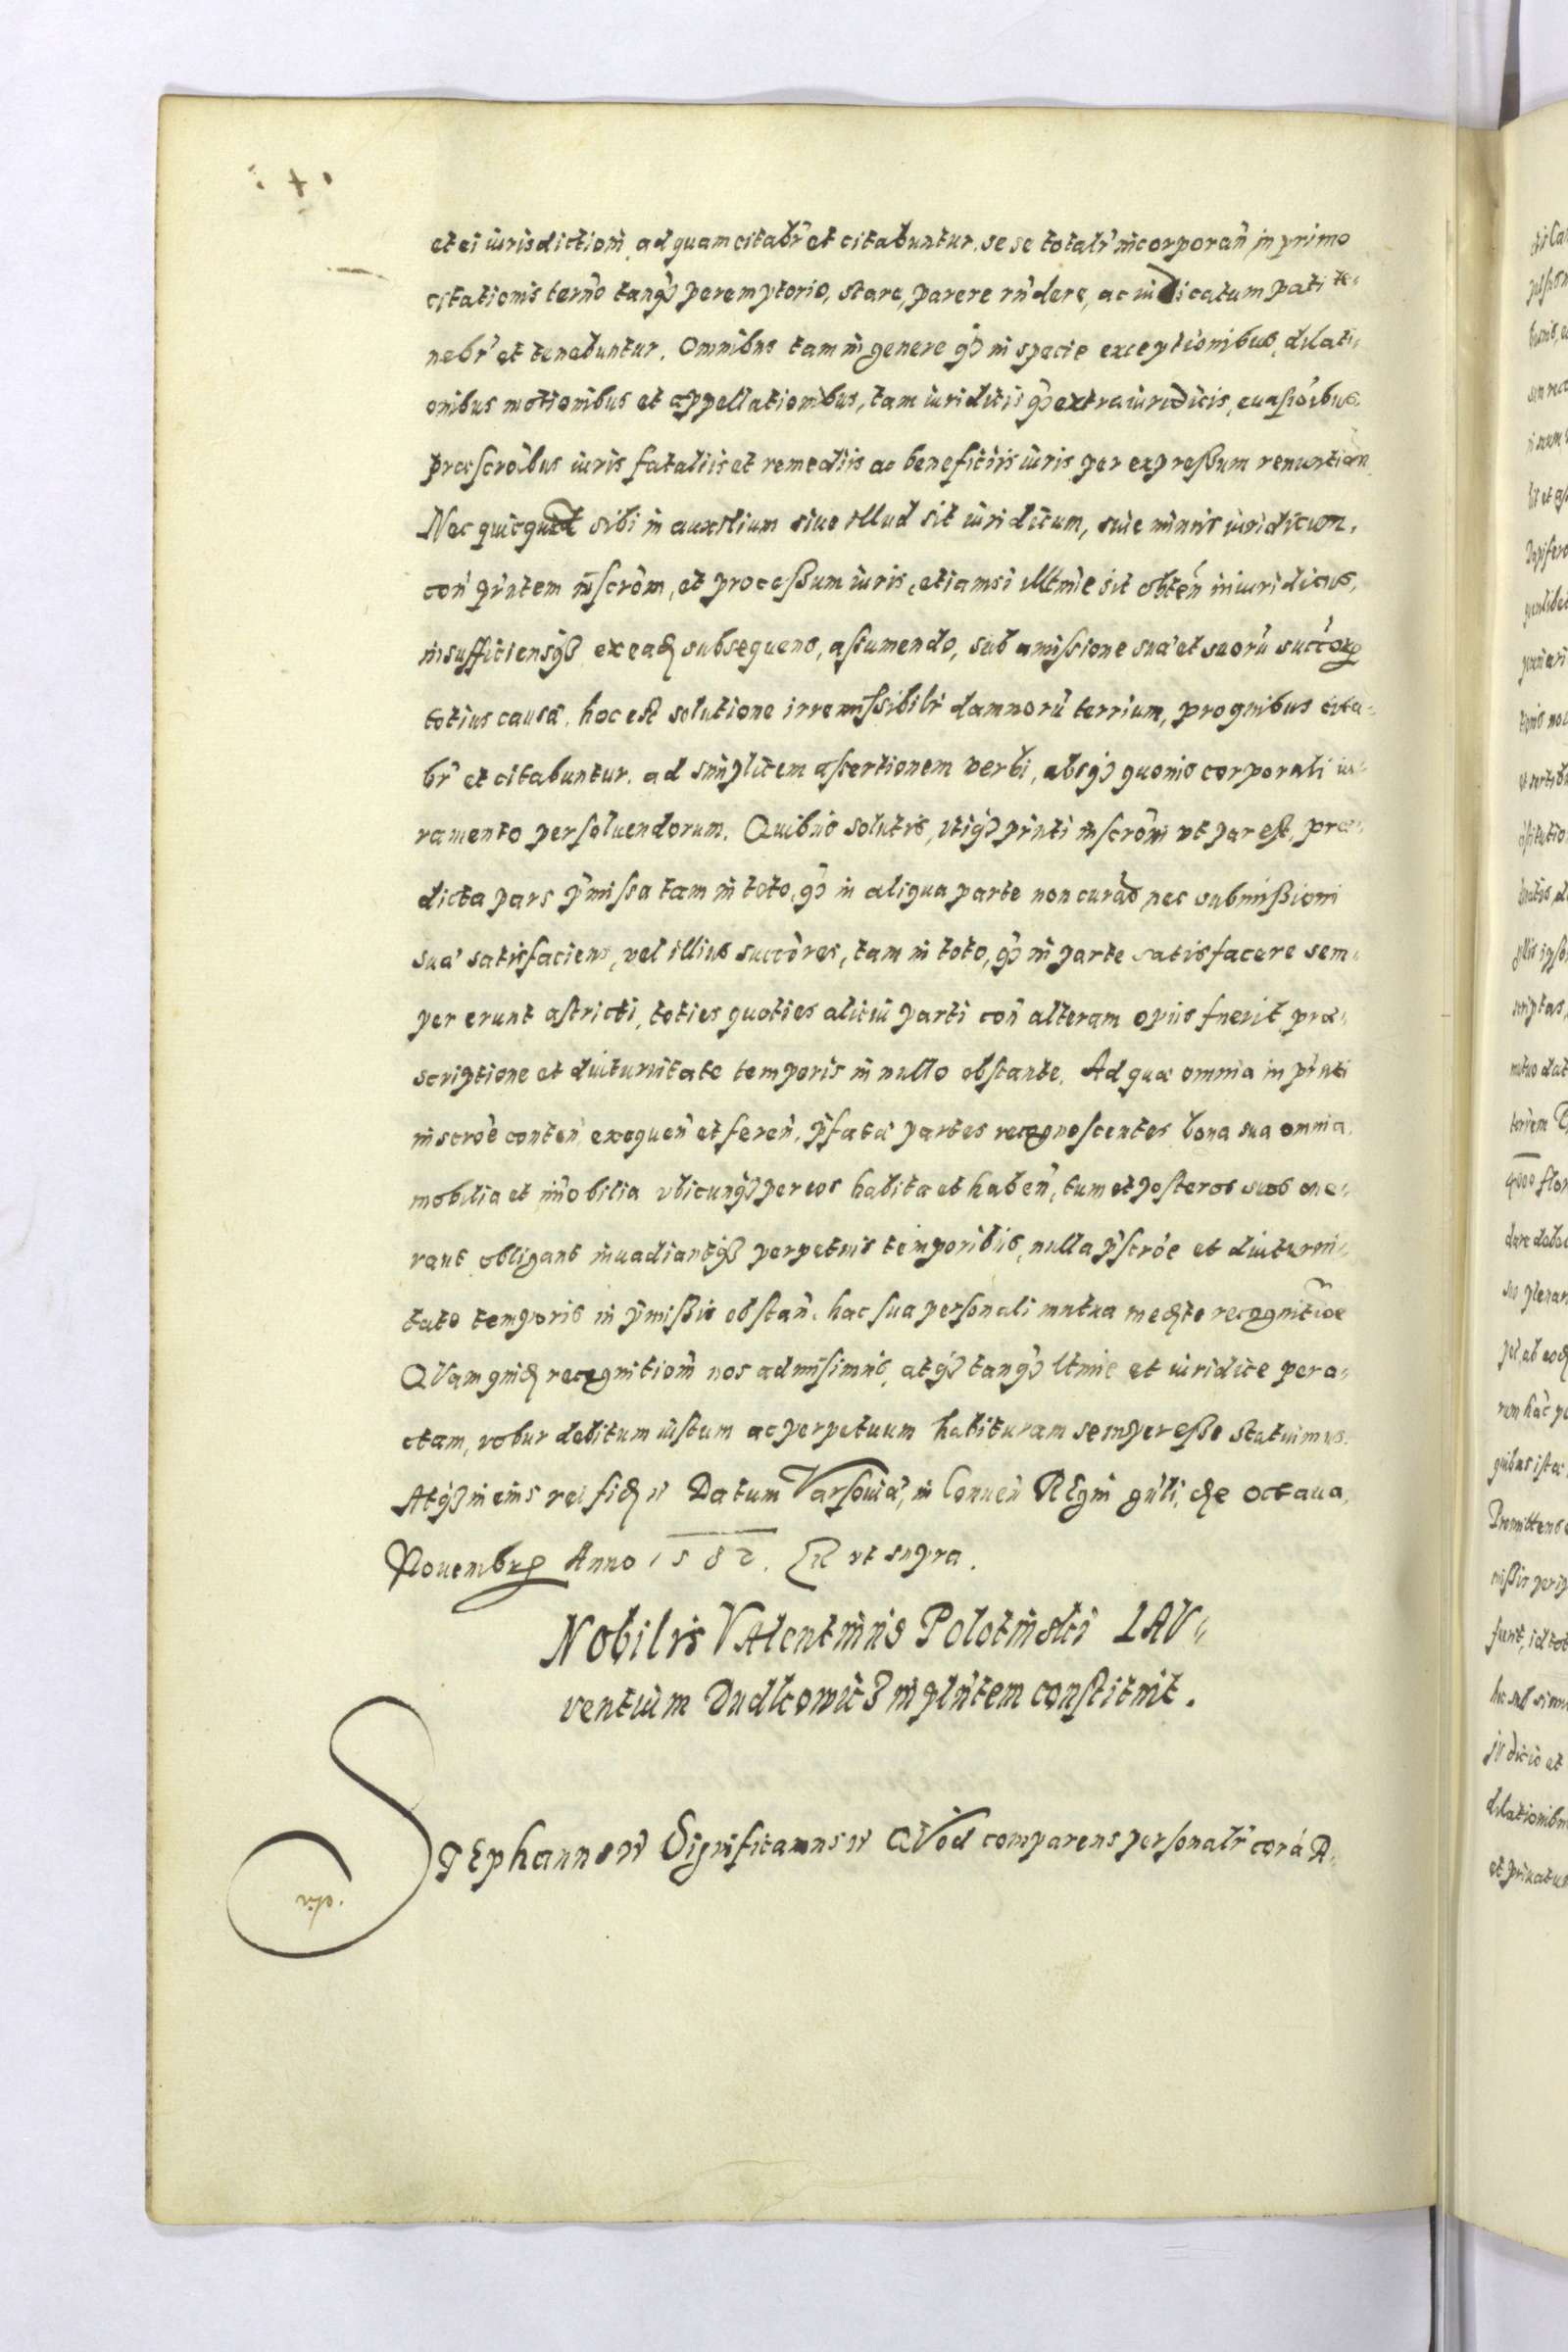 et ei iurisdictioni, ad quam citabr̃ et citabuntur, se se totalr̃ incorporan̄ in primo
citationis termo tanq̃ȝ peremptorio, stare, parere rñdere, ac iudicatum pati te=
nebr̃ et tenebuntur. Omnibus tam in genere q̃ȝ in specie exceptionibus, dilati=
onibus motionibus et appellationibus, tam iuridicis q̃ȝ extraiuridicis, euasiõibus
præscrõibus iuris fataliis et remediis ac beneficiis iuris per expreßum renuntian̄
Nec quicquam sibi in auxilium siue illud sit iuridicum, siue minus iuridicum,
coñ p̃ntem inscrõm, et proceßum iuris, etiamsi illtmie sit obteñ iniuridicus,
insufficiensqȝ ex eadȝ subsequens, assumendo, sub amissione suæ et suorũ succorȝ
totius causæ, hoc est solutione irremissibilr̃ damnorũ terrium, pro quibus cita=
br̃ et citabuntur, ad simplicem assertionem verbi, absqȝ quouis corporali iu=
ramento persoluendorum. Quibus solutis, vtiqȝ p̃nti inscrõni vt par est, præ=
dicta pars p̃missa tam in toto, q̃ȝ in aliqua parte non curãs nec submißioni
suæ satisfaciens, vel illius succõres, tam in toto, q̃ȝ in parte satisfacere sem=
per erunt astricti, toties quoties alicui parti coñ alteram opus fuerit præ=
scriptione et diuturnitate temporis in nullo obstante. Ad quæ omnia in p̃nti
inscrõe conteñ exequeñ et fereñ, p̃fatæ partes recognoscentes bona sua omnia
mobilia et im̃obilia vbicunqȝ per eos habita et habeñ, tum et posteros suos one=
rant obligant inuadiantqȝ perpetuis temporibus, nulla p̃scrõe et diuturni=
tate temporis in p̃mißis obstañ, hac sua personali mutua medȝte recognitiõe
QVam quidȝ recognitiom̃ nos admisimus, atqȝ tanq̃ȝ ltmie et iuridice pera=
ctam, robur debitum iustum ac perpetuum habituram semper eße statuimus.
Atqȝ in eius rei fidȝ ꝛc Datum Varsouiæ, in Conueñ REgni gñli, die octaua
Nouembrȝ Anno 1582. RR vt supra.
Nobilis VAlentinus Polotinski LAU=
rentium Dudkowicȝ in plñtem constituit.
STEphanus ꝛc Significamus ꝛc QVod comparens personalr̃ corã A=